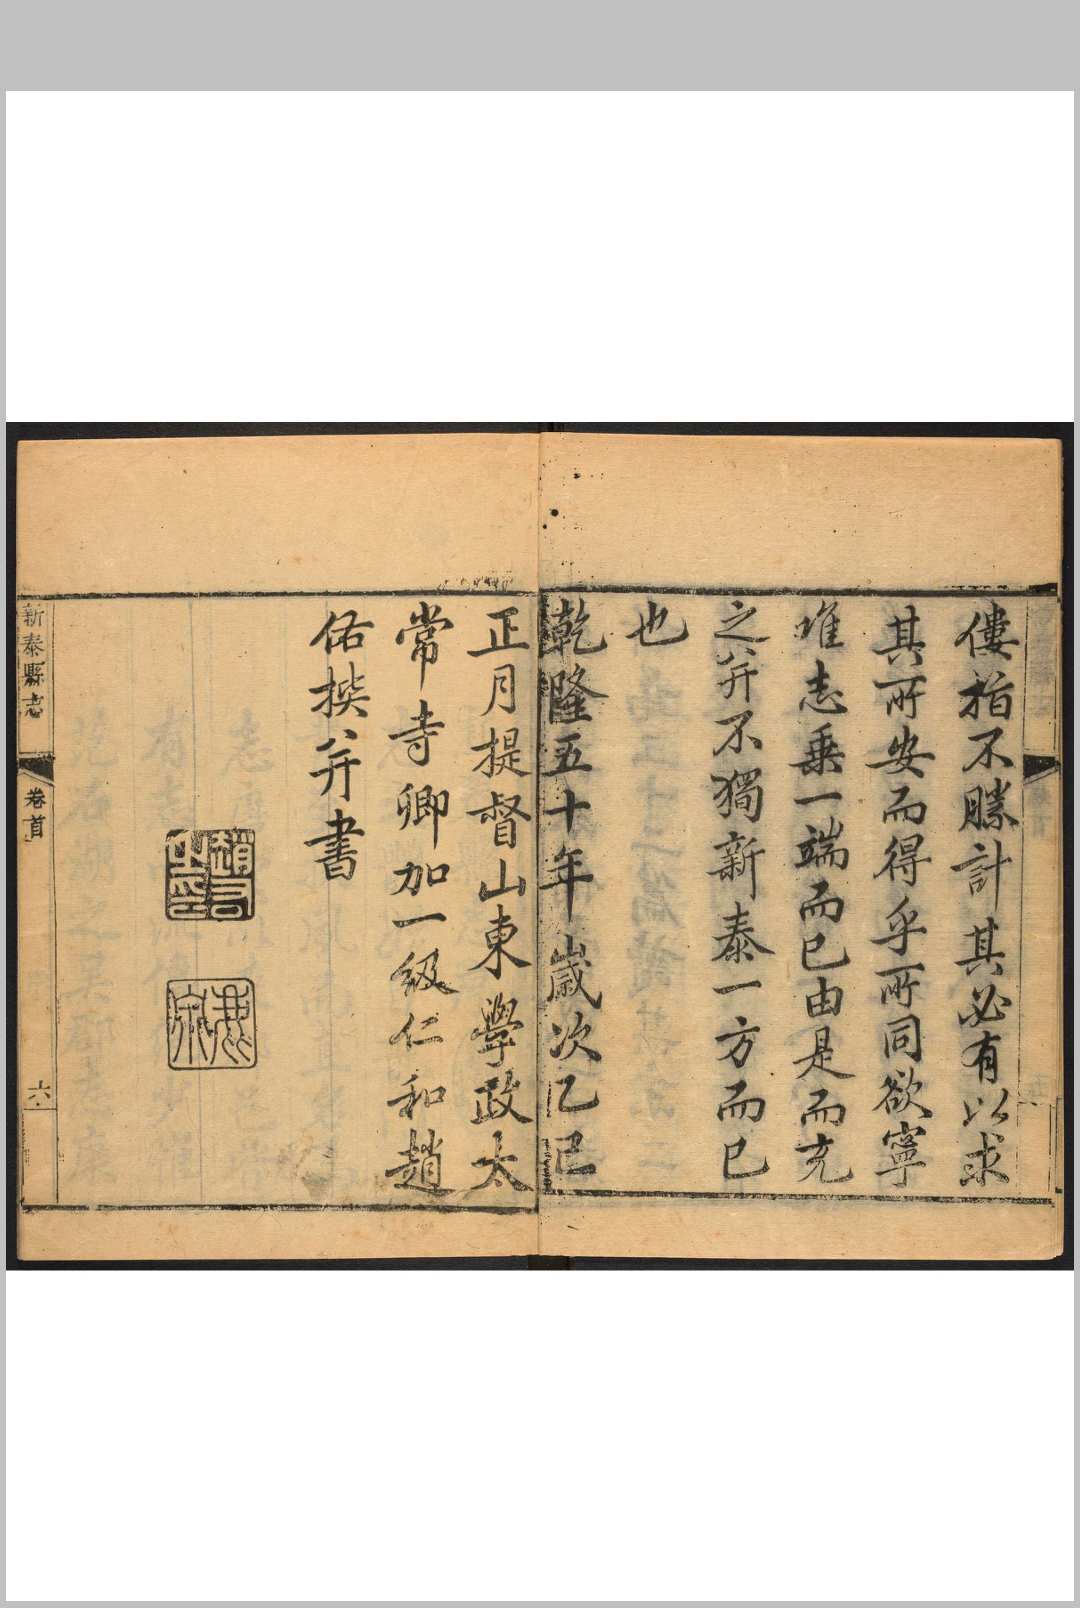 僂指不勝計其必有以求
其所安而得乎所同欲寧
唯志乗一端而已由是而充
之并不獨新泰一方而已
也
乾隆五十年歲次乙巳
正月提督山東學政太
常寺卿加一級仁和趙
佑撰并書
趙佑之印
鹿泉
新泰縣志
卷首
六